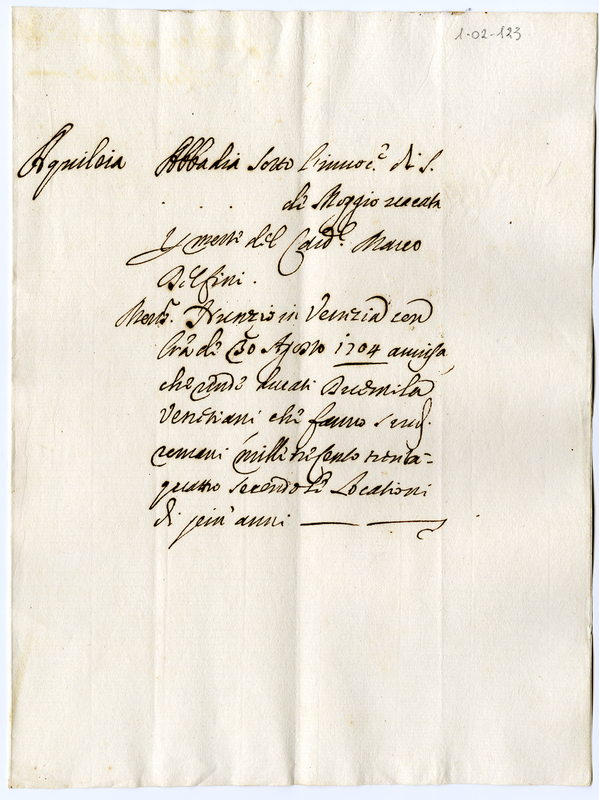 1-02-123
Aquileia Abbadia sotto l'invoc.e di S.
. . . di Moggio vacata
p morte del Card.l Marco
Delfini.
Mons.r Nunzio in Venezia con
l'ra di 30 Agosto 1704 avvisa,
che rende ducati Duemila
Venetiani che fanno scudi
romani mille trecento trenta=
quattro secondo le Locationi
di sein' anni